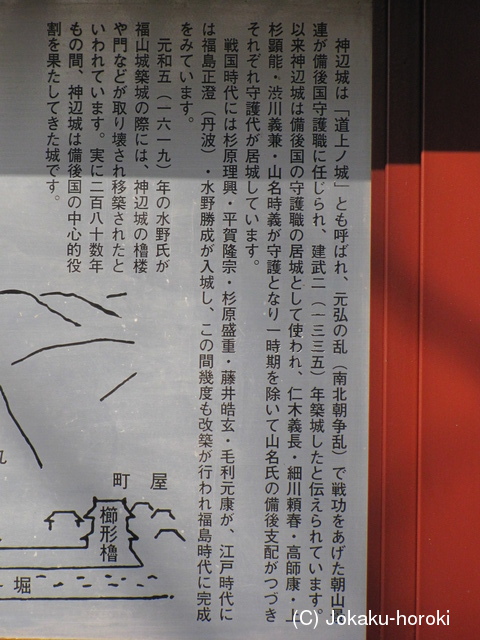 神辺城は「道上ノ城」とも呼ばれ、元弘の乱（南北朝争乱）で戦功をあげた朝山
連が備後国守護職に任じられ、建武二（一三三五）年築城したと伝えられています。
以来神辺城は備後国の守護職の居城として使われ、仁木義長・細川頼春・高師康・
杉顕能・渋川義兼・山名時義が守護となり一時期を除いて山名氏の備後支配がつづき
それぞれ守護代が居城しています。
戦国時代には杉原理興・平賀隆宗・杉原盛重・藤井皓玄・毛利元康が、江戸時代に
は福島正澄（丹波）・水野勝成が入城し、この間幾度も改築が行われ福島時代に完成
をみています。
元和五（一六一九）年の水野氏が
福山城築城の際には、神辺城の櫓楼
や門などが取り壊され移築されたと
いわれています。実に二百八十数年
もの間、神辺城は備後国の中心的役
割を果たしてきた城です。
町屋
櫛形櫓
堀
(C) Jokaku-horoki